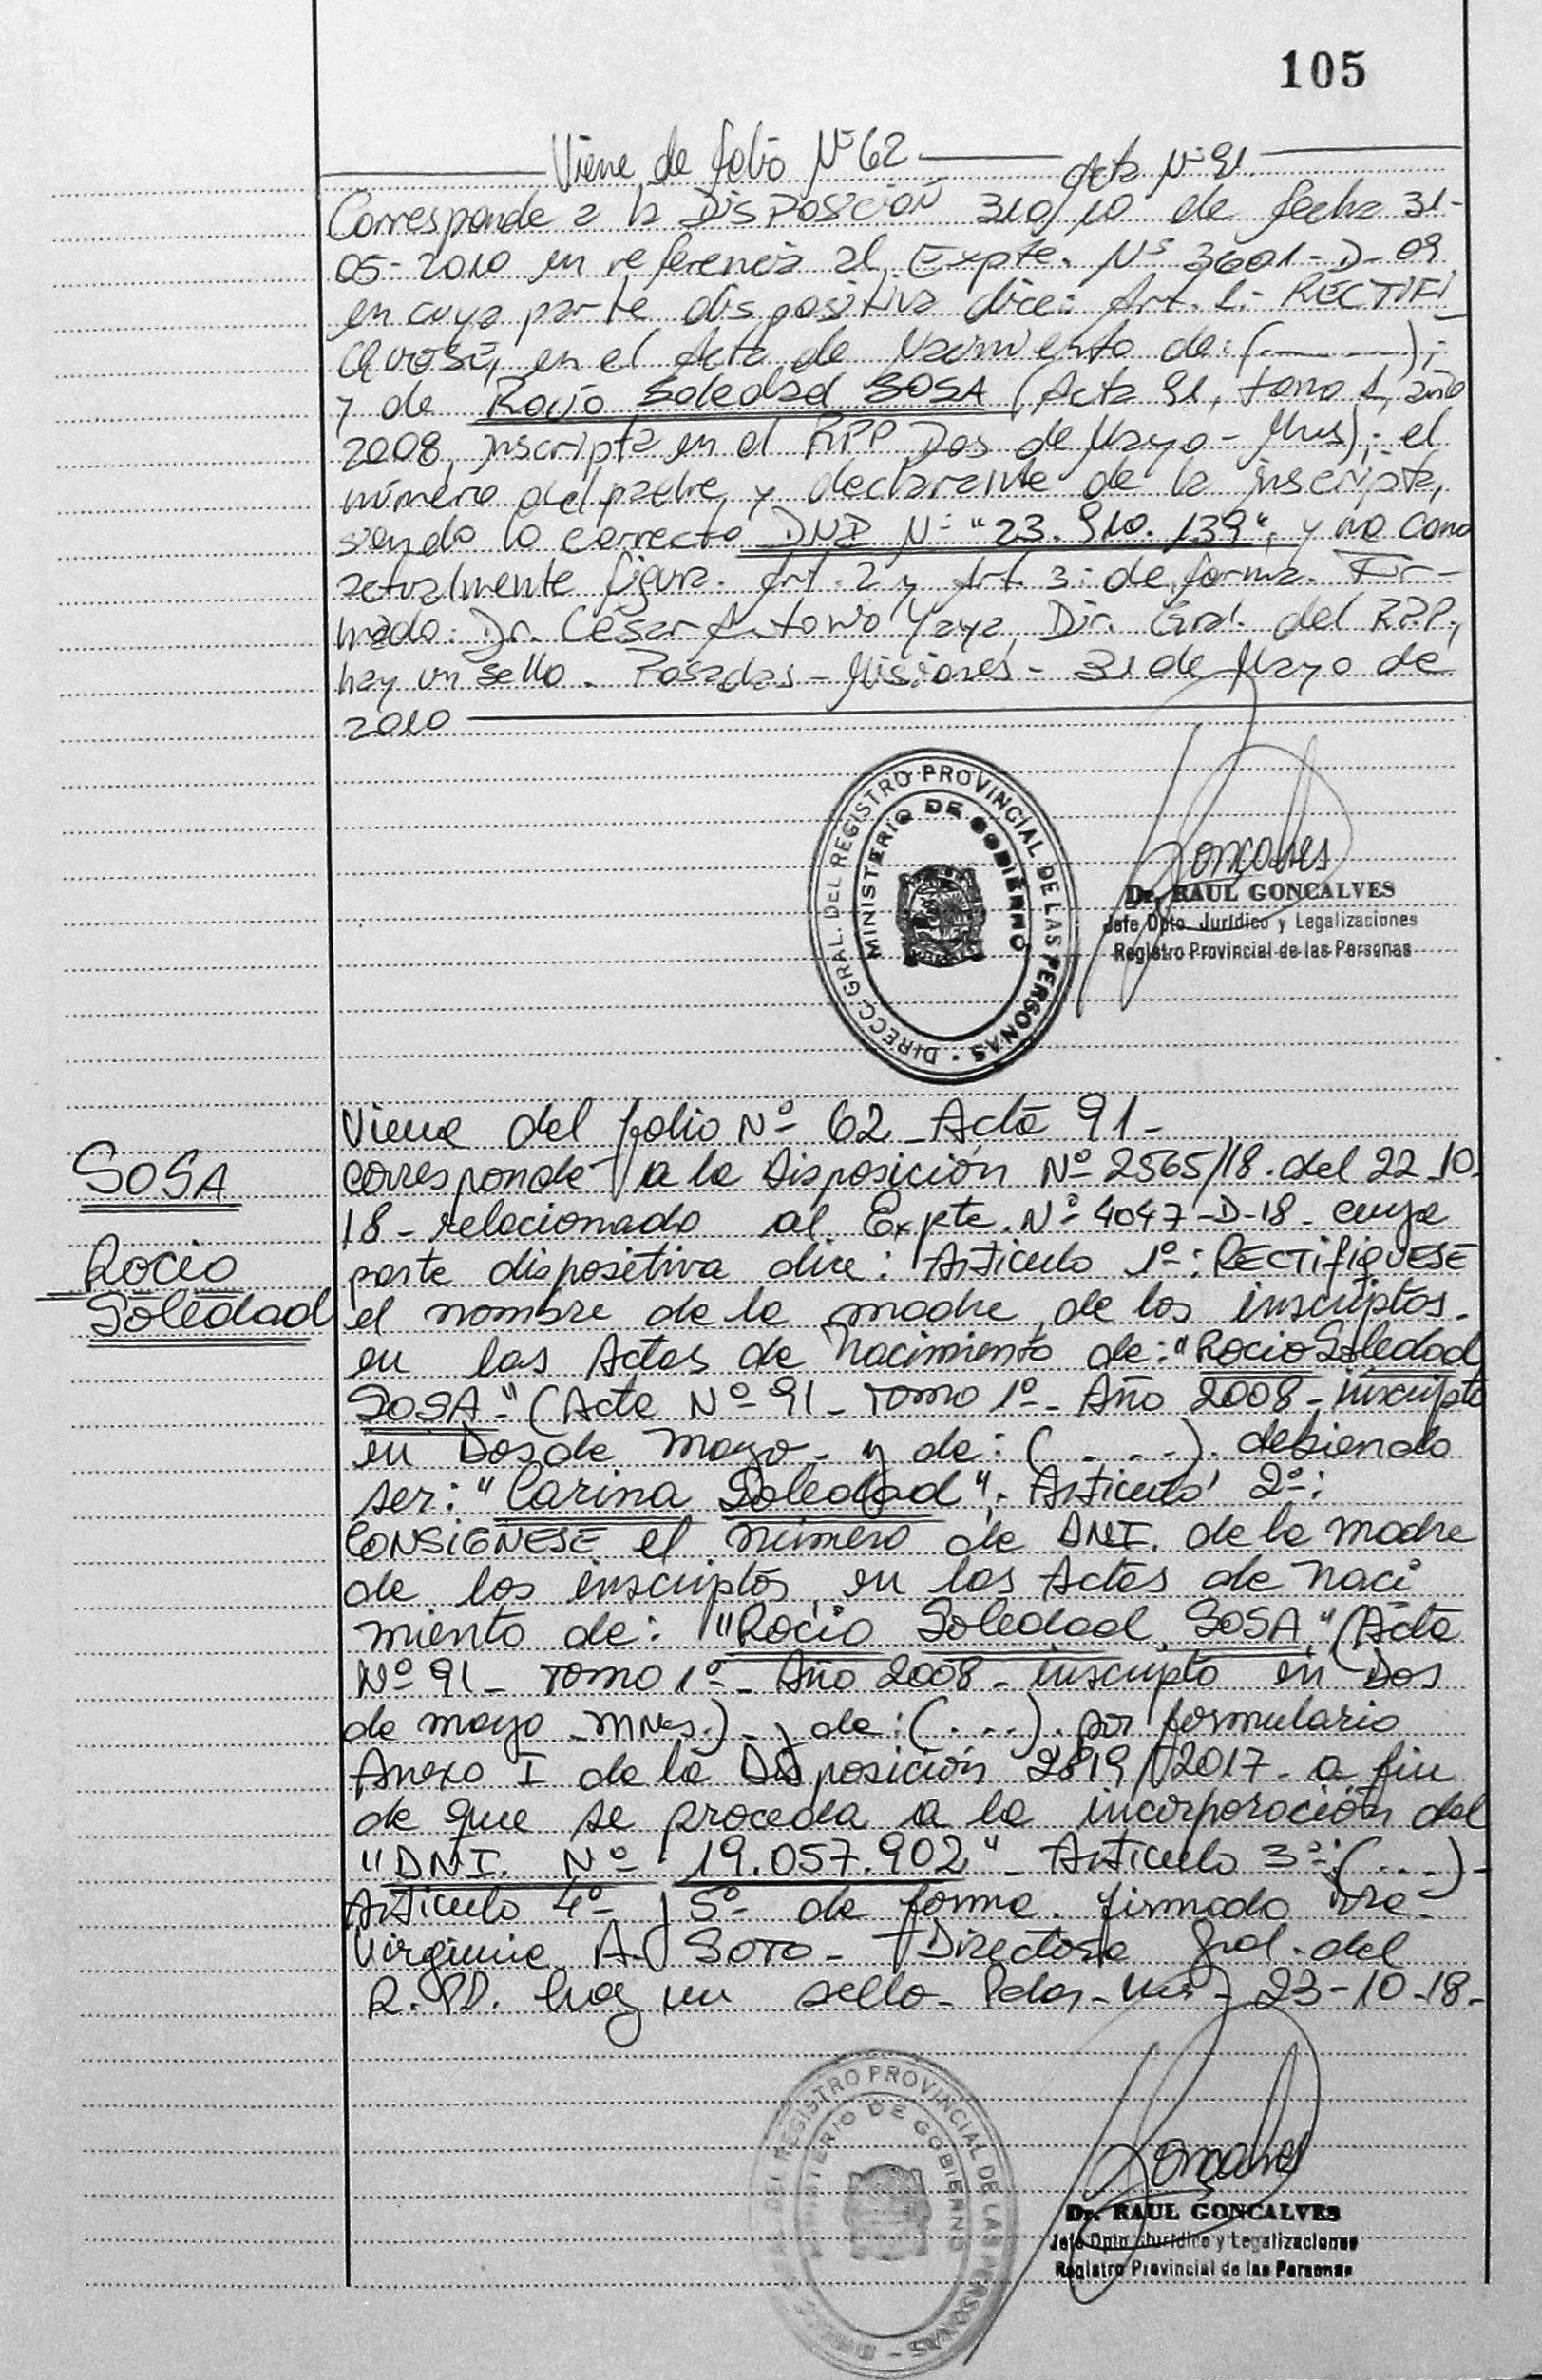 105
Viene de folio Nº 62 Acta Nº 91.
Corresponde a la DISPOSICIÓN 310/10 de fecha 31-
05-2010 en referencia al Expte. Nº 3601-D-09
en cuya parte dispositiva dice: Art. 1:- RECTIFI
QUESE, en el Acta de Nacimiento de: (- - -);
y de Rocío Soledad SOSA (Acta 91, tomo 1, año
2008, inscripta en el RPP Dos de Mayo - Mnes); el
número del padre y declarante de la inscripta,
siendo lo correcto DNI Nº "23.910.139", y no como
actualmente figura. Art. 2 y Art. 3: de forma. Fir-
mado: Dr. César Antonio Yaya, Dir. Gral. del R.P.P.,
hay un sello. Posadas - Misiones - 31 de Mayo de
2010
DIRECC. GRAL. DEL REGISTRO PROVINCIAL DE LAS PERSONAS
MINISTERIO DE GOBIERNO
Goncalves
Dr. RAUL GONCALVES
Jefe Dpto. Jurídico y Legalizaciones
Registro Provincial de las Personas
SOSA
Rocio
Soledad
Viene del folio Nº 62 - Acta 91 -
corresponde a la Disposición Nº 2565/18. del 22-10-
18 - relacionado al Expte. Nº 4047-D-18 - cuya
parte dispositiva dice: Artículo 1º: RECTIFIQUESE
el nombre de la madre de los inscriptos.
en las Actas de Nacimiento de: "Rocio Soledad
SOSA" (Acta Nº 91 - Tomo 1º - Año 2008 - inscripta
en Dos de mayo - y de: (....). debiendo
ser: "Carina Soledad". Artículo 2º:
CONSIGNESE el número de DNI. de la madre
de los inscriptos en las Actas de naci
miento de: "Rocio Soledad SOSA" (Acta
Nº 91 - Tomo 1º - Año 2008 - inscripta en Dos
de mayo - Mnes.) - y de: (....). por formulario
Anexo I de la Disposición 2819/2017 - a fin
de que se proceda a la incorporación del
"DNI. Nº 19.057.902" - Artículo 3º: (....) -
Artículo 4º y 5º de forma. firmado Dra.
Virginia A. SOTO - Directora Gral. del
R.PP. hay un sello - Pdas - Mnes - 23-10-18 -
DIRECC. GRAL. DEL REGISTRO PROVINCIAL DE LAS PERSONAS
MINISTERIO DE GOBIERNO
Goncalves
Dr. RAUL GONCALVES
Jefe Dpto Jurídico y Legalizaciones
Registro Provincial de las Personas